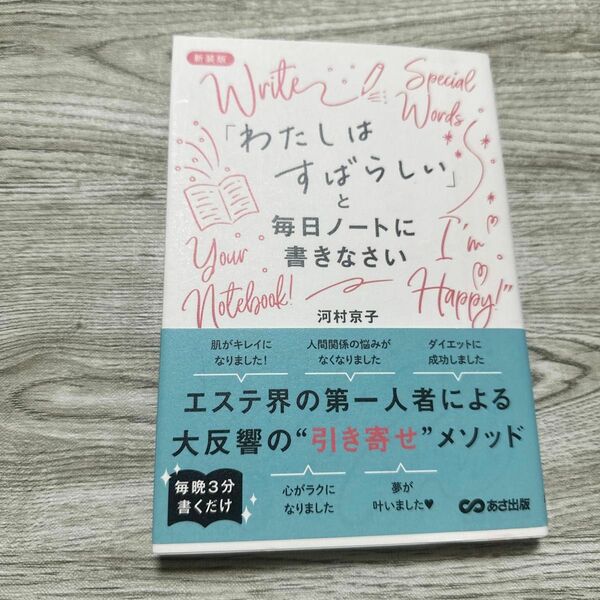 新装版
Write
Special
Words
「わたしは
すばらしい」
と
毎日ノートに
書きなさい
Your
Notebook!
I'm
Happy!"
河村京子
肌がキレイに
なりました!
人間関係の悩みが
なくなりました
ダイエットに
成功しました
エステ界の第一人者による
大反響の“引き寄せ”メソッド
毎晩3分
書くだけ
心がラクに
なりました
夢が
叶いました♥
あさ出版